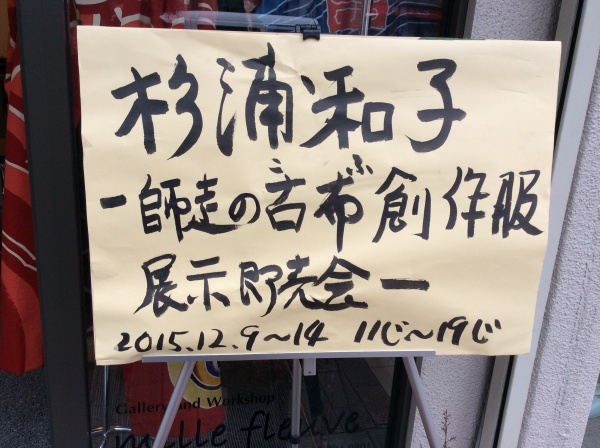 杉浦和子
ー師走の古布創作服
こ ふ
展示即売会ー
2015.12.9〜14 11じ〜19じ
Gallery and Workshop
mille fleuve